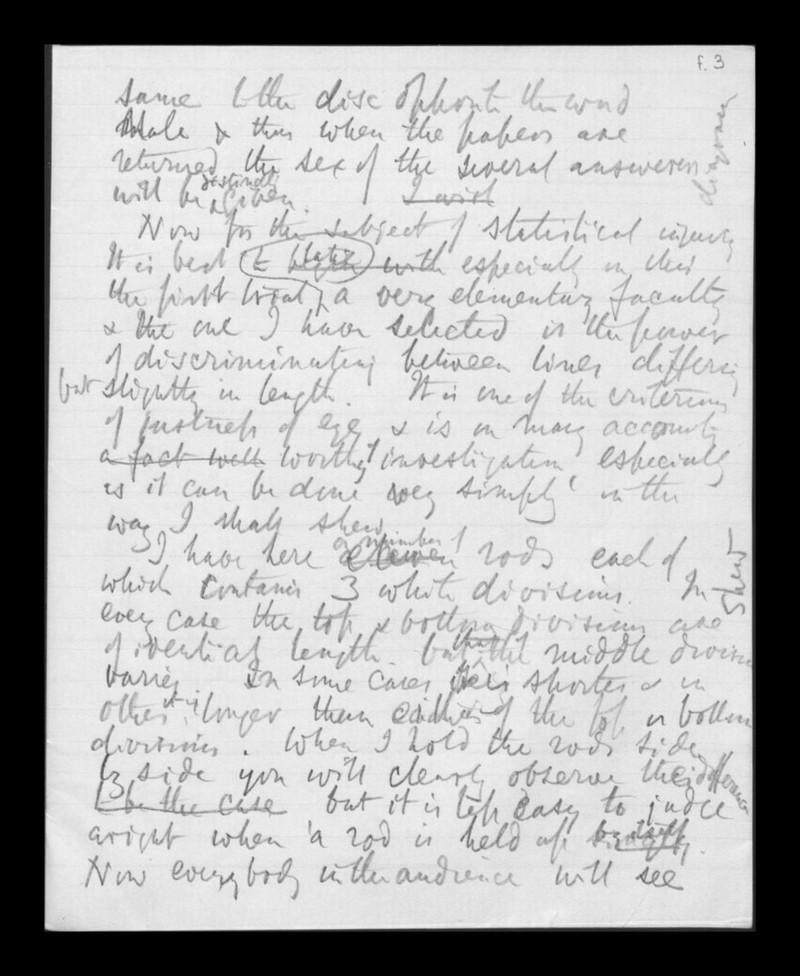 f. 3
same to the disc opposite the word
Male & thus when the papers are
returned the sex of the several answerers
will be distinctly given. I wish
diagram
Now for the subject of statistical inquiry
It is best to take with especially in this
the first trial, a very elementary faculty
& the one I have selected is the power
of discriminating between lines differing
but slightly in length. It is one of the criterions
of justness of eye & is on many accounts
a fact well worthy investigation especially
as it can be done very simply in the
way I shall shew
I have here a number of eleven rods each of
which contains 3 white divisions. In
Shew
every case the top & bottom divisions are
of identical length. but the middle division
varies. In some cases it is shorter & in
others it is longer than either of the top or bottom
divisions. When I hold the rods side
by side you will clearly observe the difference
to be the case but it is less easy to judge
aright when a rod is held up by itself.
Now everybody in the audience will see